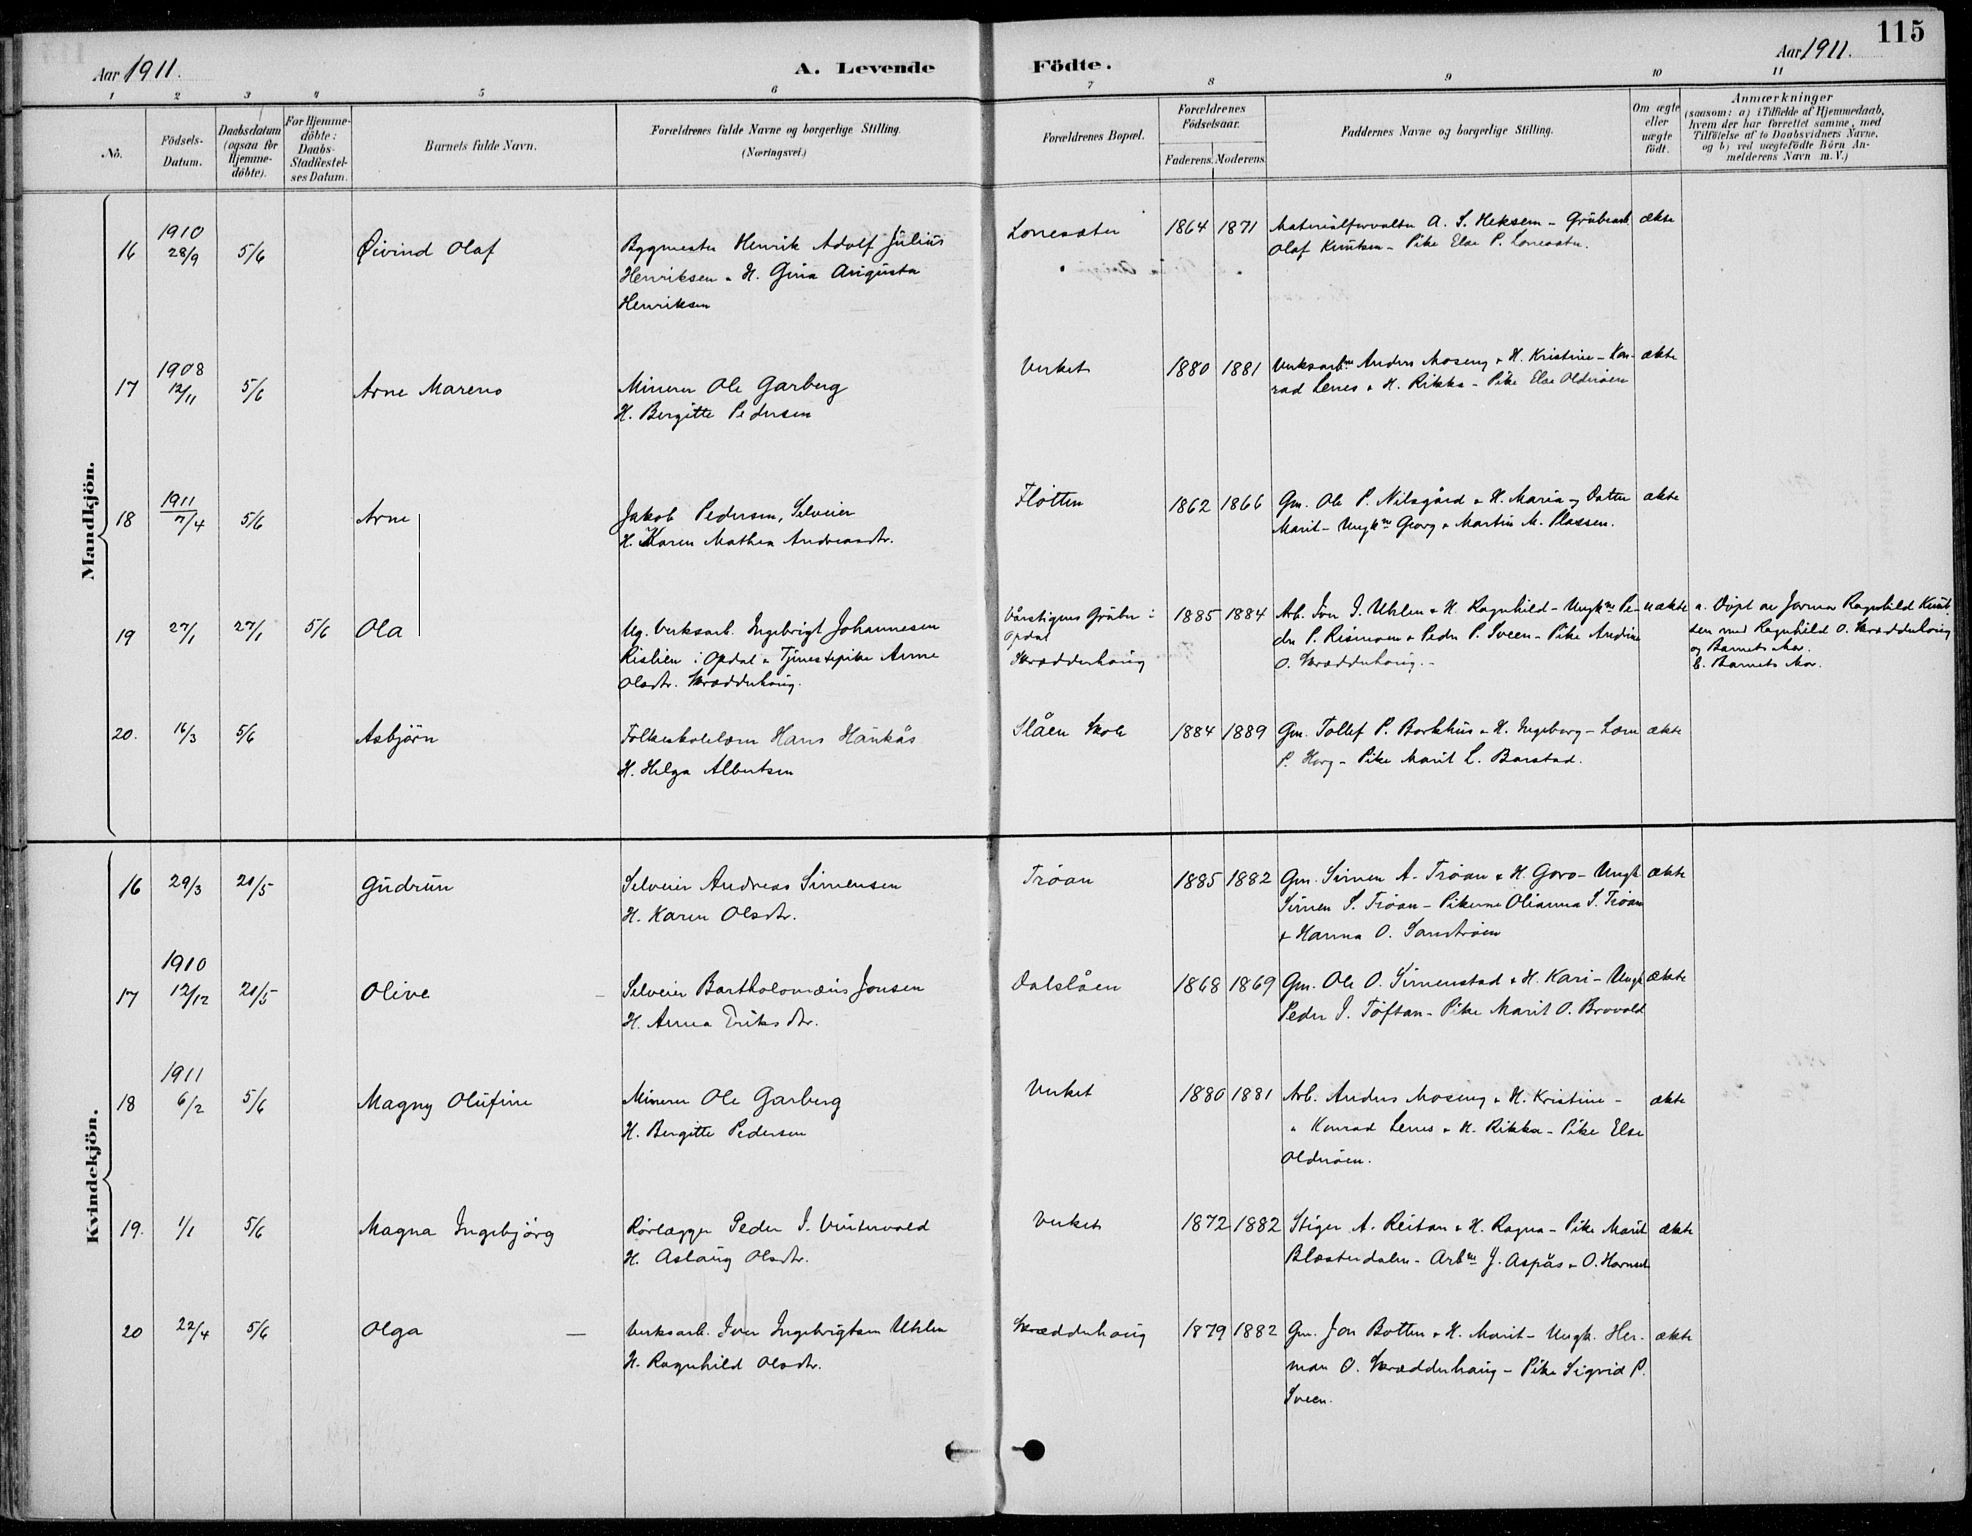 115
Aar 1911.
A. Levende Födte.
Aar 1911.
1 2 3 4 5 6 7 8 9 10 11
No.
Födsels-Datum.
Daabsdatum (ogsaa for Hjemme-döbte).
For Hjemme-döbte: Daabs-Stadfæstel-ses Datum.
Barnets fulde Navn.
Forældrenes fulde Navne og borgerlige Stilling.
(Næringsvei.)
Forældrenes Bopæl.
Forældrenes Födselsaar.
Faderens. Moderens.
Faddernes Navne og borgerlige Stilling.
Om ægte eller uægte födt.
Anmærkninger
(saasom: a) i Tilfælde af Hjemmedaab,
hvem der har forrettet samme, med
Tilföielse af to Daabsvidners Navne,
og b) ved uægtefödte Börn An-
melderens Navn m. V.)
Mandkjön.
16 1910 28/9 5/6 Øivind Olaf
Byggmester Henrik Adolf Julius
Henriksen & H. Gina Augusta
Henriksen
Lonesæter 1864 1871
Materialforvalter A. S. Heksem - Grubearb.
Olaf Knutsen - Pike Else P. Lonesæter.
ækte
17 1908 12/11 5/6 Arne Mareno
Minerer Ole Garberg
H. Bergitte Pedersen
Verket 1880 1881
Verksarb. Anders Moseng & H. Kristine - Kon-
rad Lenes & H. Rikka - Pike Else Olderøien
ækte
18 1911 7/4 5/6 Arne
Jakob Pedersen, Selveier
H. Karen Mathea Andreasdtr.
Fløtten 1862 1866
Gm. Ole P. Nilsgård & H. Maria og Datter
Marit - Ungkne Georg & Martin M. Plassen.
ækte
19 27/1 27/1 5/6 Ola
Ug. Verksarb. Ingebrigt Johannesen
Rislien i Opdal & Tjenestepike Anne
Olsdtr. Skrædderhaug.
Vårstigens Gruber i
Opdal
Skrædderhaug
1885 1884
Arb. Iver I. Uhlen & H Ragnhild - Ungkne Pe-
der P. Rismoen & Peder P. Sveen - Pike Andrine
O. Skrædderhaug. -
uækte
a. Døpt av Jormor Ragnhild Knut-
sen med Ragnhild O. Skrædderhaug
og Barnets Mor.
b. Barnets Mor.
20. 16/3 5/6 Asbjörn
Folkeskolelærer Hans Haukås
H. Helga Albertsen
Slåen Skole 1884 1889
Gm. Tollef P. Barkhus & H. Ingeborg - Lærer
P. Horg - Pike Marit L. Barstad.
ækte
Kvindekjön.
16 29/3 21/5 Gudrun
Selveier Andreas Simensen
H. Karen Olsdtr.
Trøan 1885 1882
Gm. Simen A. Trøan & H. Goro - Ungk
Simen S. Trøan - Pikerne Olianna S. Trøan
& Hanna O. Sanstrøen
ækte
17 1910 12/12 21/5 Olive
Selveier Bartholomæus Jonsen
H. Anna Eriksdtr.
Dalslåen 1868 1869
Gm. Ole O. Simenstad & H. Kari - Ungk
Peder J. Tøftan - Pike Marit O. Brovold
ækte
18 1911 6/2 5/6 Magny Olufine
Minerer Ole Garberg
H. Bergitte Pedersen
Verket 1880 1881
Arb. Anders Moseng & H. Kristine -
" Konrad Lenes & H. Rikka - Pike Else
Olderøien.
ækte
19. 1/1 5/6 Magna Ingebjörg
Rørlægger Peder J. Vintervold
H. Aslaug Olsdtr.
Verket 1872 1882
Stiger A. Reitan & H. Ragna - Pike Marit
Blæsterdalen - Arbne J. Aspås & O.
ækte
20 22/4 5/6 Olga
Verksarb. Iver Ingebrigtsen Uhlen
H. Ragnhild Olsdtr.
Skrædderhaug 1879 1882
Gm. Jon Botten & H. Marit - Ungk. Her-
man O. Skrædderhaug - Pike Sigrid P.
Sveen.
ækte